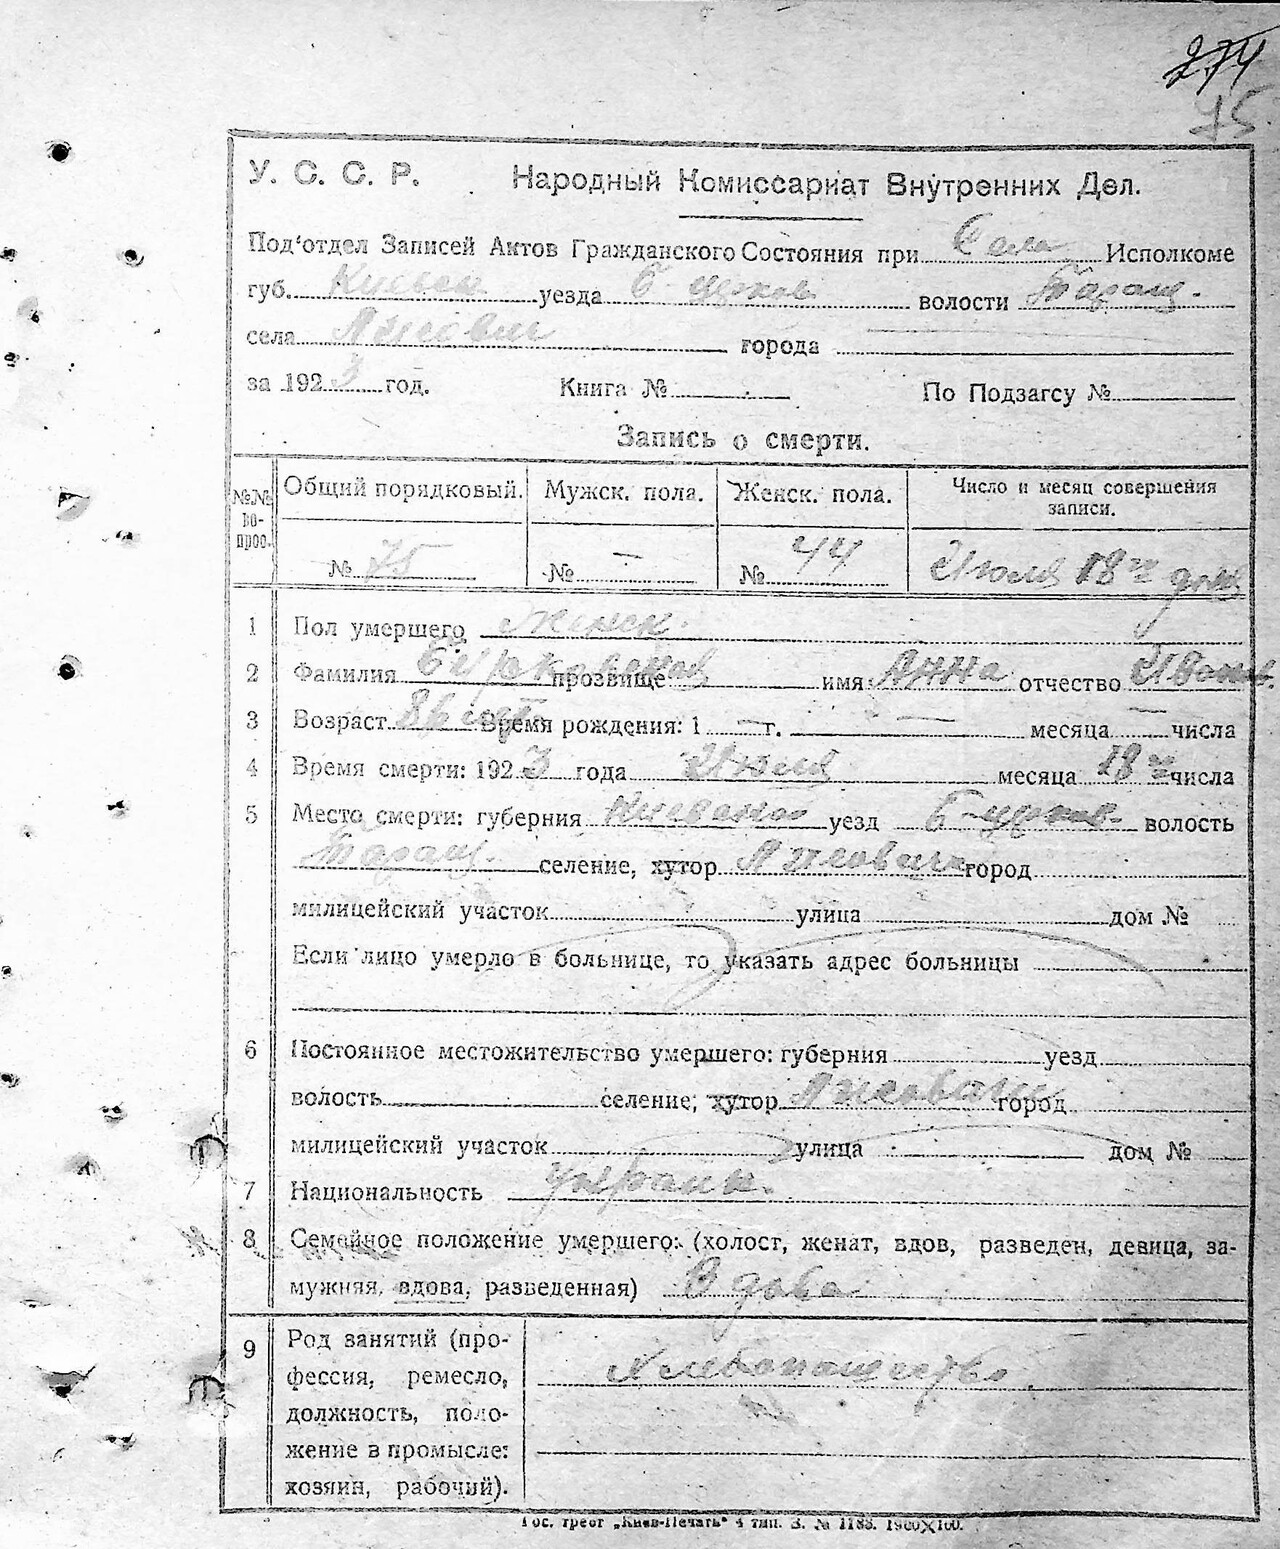 274
75
У. С. С. Р. Народный Комиссариат Внутренних Дел.
Под'отдел Записей Актов Гражданского Состояния при Села Исполкоме
губ. Киевск уезда Б-церков волости Таращ.
села города
за 1923 год. Книга № По Подзагсу №
Запись о смерти.
№№ вопрос. Общий порядковый. Мужск. пола. Женск. пола. Число и месяц совершения записи.
№ 75 № — № 44 Июля 18го дня
1 Пол умершего Женск.
2 Фамилия прозвище имя Анна отчество Иванов.
3 Возраст 86 лет Время рождения: 1 — г. — месяца — числа
4 Время смерти: 1923 года Июля месяца 18го числа
5 Место смерти: губерния Киевская уезд Б-церков. волость
Таращ. селение, хутор город
милицейский участок улица дом №
Если лицо умерло в больнице, то указать адрес больницы
6 Постоянное местожительство умершего: губерния уезд
волость селение, хутор город
милицейский участок улица дом №
7 Национальность украин.
8 Семейное положение умершего: (холост, женат, вдов, разведен, девица, за-
мужняя, вдова, разведенная) Вдова
9 Род занятий (про-
фессия, ремесло,
должность, поло-
жение в промысле:
хозяин, рабочий).
Хлебопашество
Гос. трест „Киев-Печать" 4 тип. З. № 1183. 1900×100.